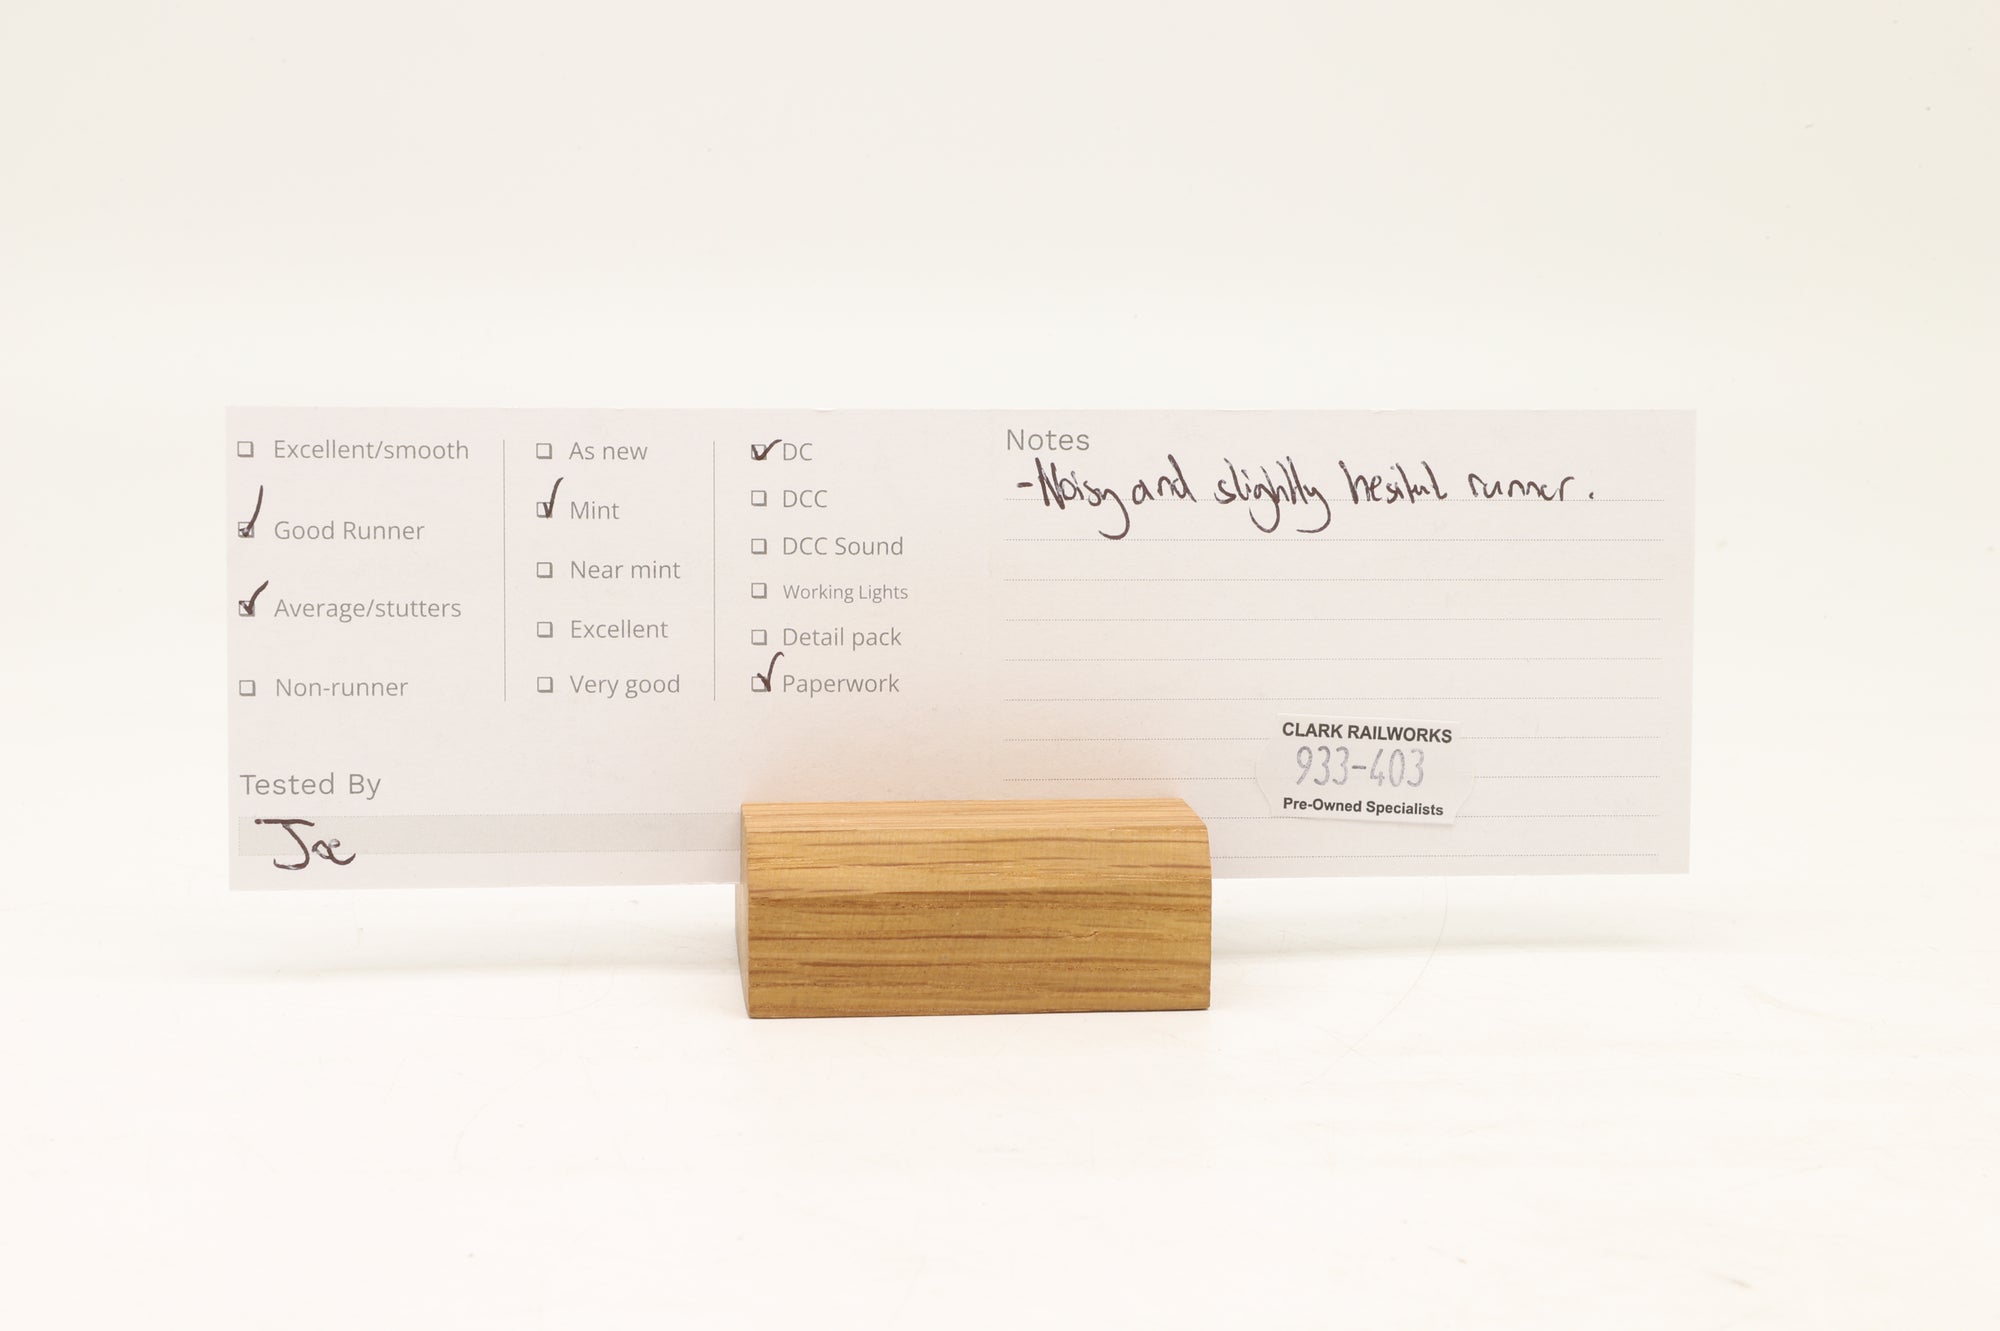 Excellent/smooth
Good Runner
Average/stutters
Non-runner
As new
Mint
Near mint
Excellent
Very good
DC
DCC
DCC Sound
Working Lights
Detail pack
Paperwork
Notes
-Noisy and slightly hesitant runner.
Tested By
Joe
CLARK RAILWORKS
933-403
Pre-Owned Specialists